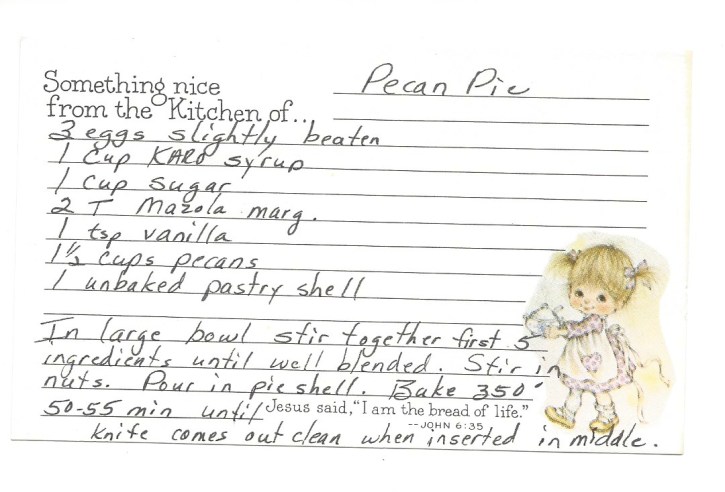 Something nice
from the Kitchen of..
Pecan Pie
3 eggs slightly beaten
1 Cup KARO syrup
1 cup sugar
2 T Mazola marg.
1 tsp vanilla
1 1/2 cups pecans
1 unbaked pastry shell
In large bowl stir together first 5
ingredients until well blended. Stir in
nuts. Pour in pie shell. Bake 350°
50-55 min until
Jesus said, "I am the bread of life."
--JOHN 6:35
knife comes out clean when inserted in middle.